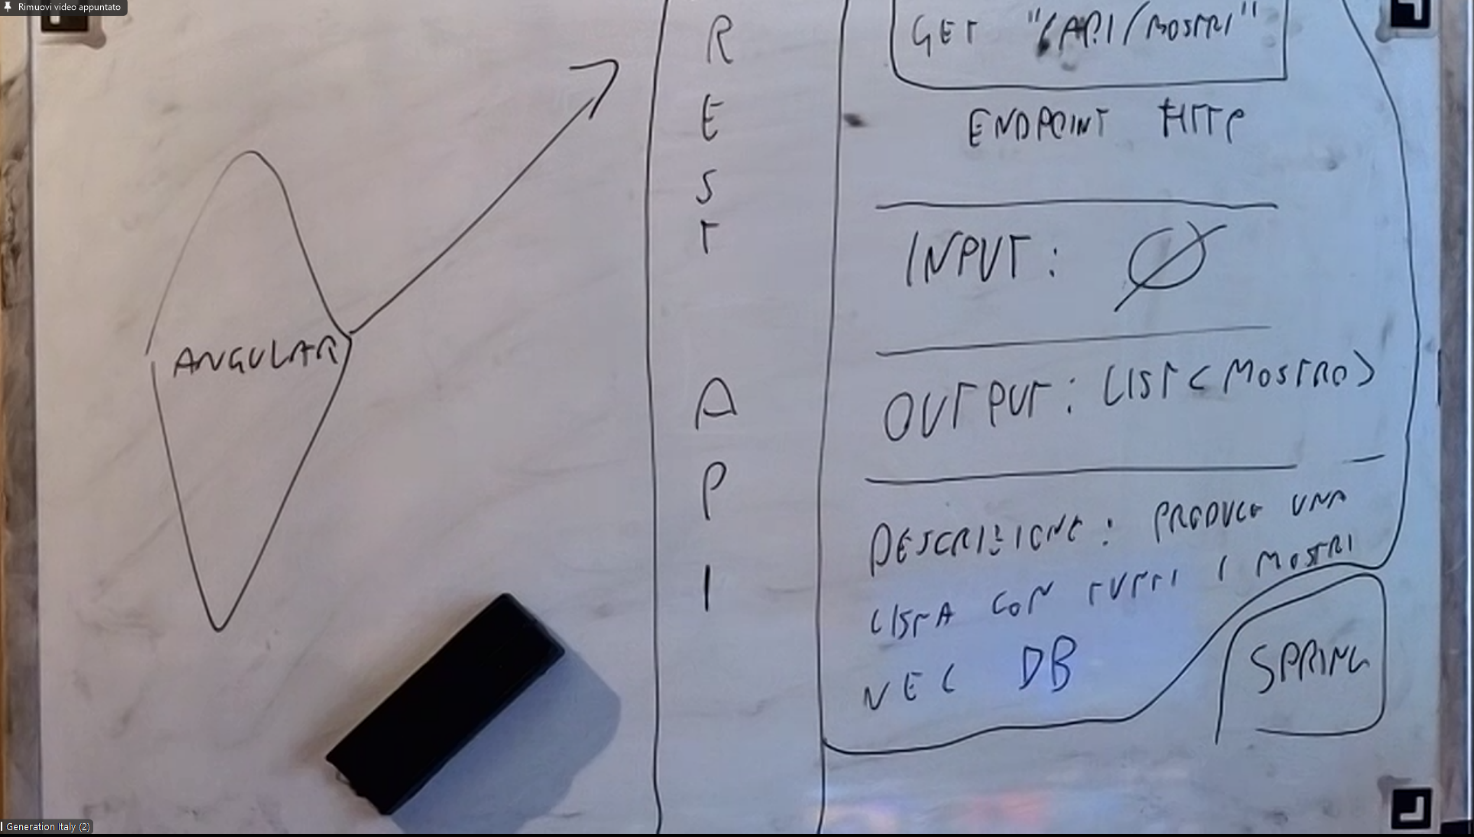 Rimuovi video appuntato
ANGULAR
REST
API
GET "/API/MOSTRI"
ENDPOINT HTTP
INPUT: Ø
OUTPUT: LIST<MOSTRO>
DESCRIZIONE: PRODUCE UNA
LISTA CON TUTTI I MOSTRI
NEL DB
SPRING
Generation Italy (2)